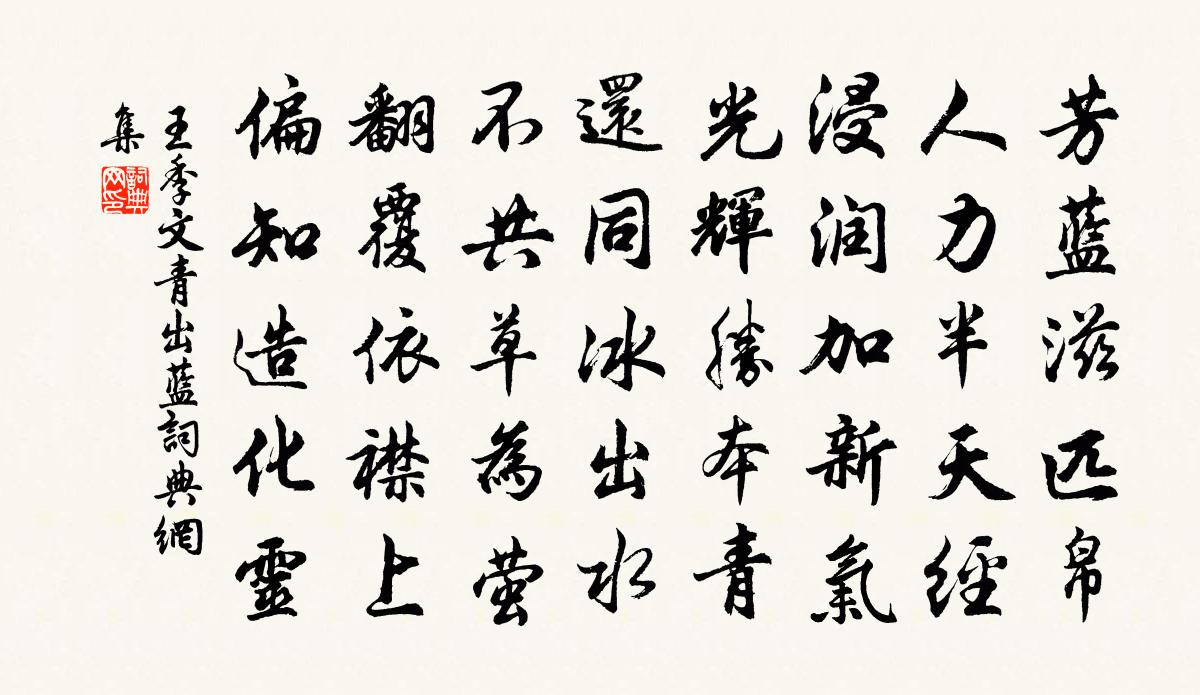 芳藍滋匹帛
人力半天經
浸润加新氣
光輝勝本青
還同冰出水
不共草為萤
翻覆依襟上
偏知造化靈
王季文青出藍詞典網
集
詞典网印